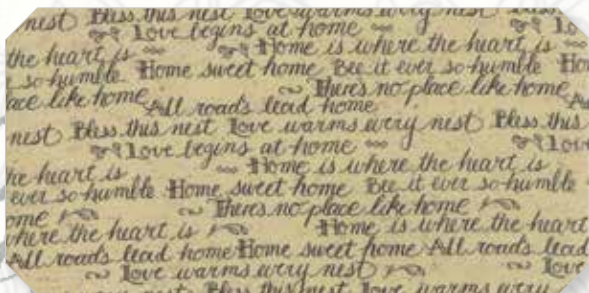 nest Bless this nest Love warms every nest Bless
Love begins at home Lo
the heart is Home is where the heart is
so humble Home sweet home Bee it ever so humble Ho
ace like home There's no place like home
All roads lead home
nest Bless this nest Love warms every nest Bless this
Love begins at home Love
he heart is Home is where the heart is
ever so humble Home sweet home Bee it ever so humble
ome There's no place like home
where the heart is Home is where the heart
All roads lead home Home sweet home All roads lead
Love warms every nest Love
nest Bless this nest Love warms every